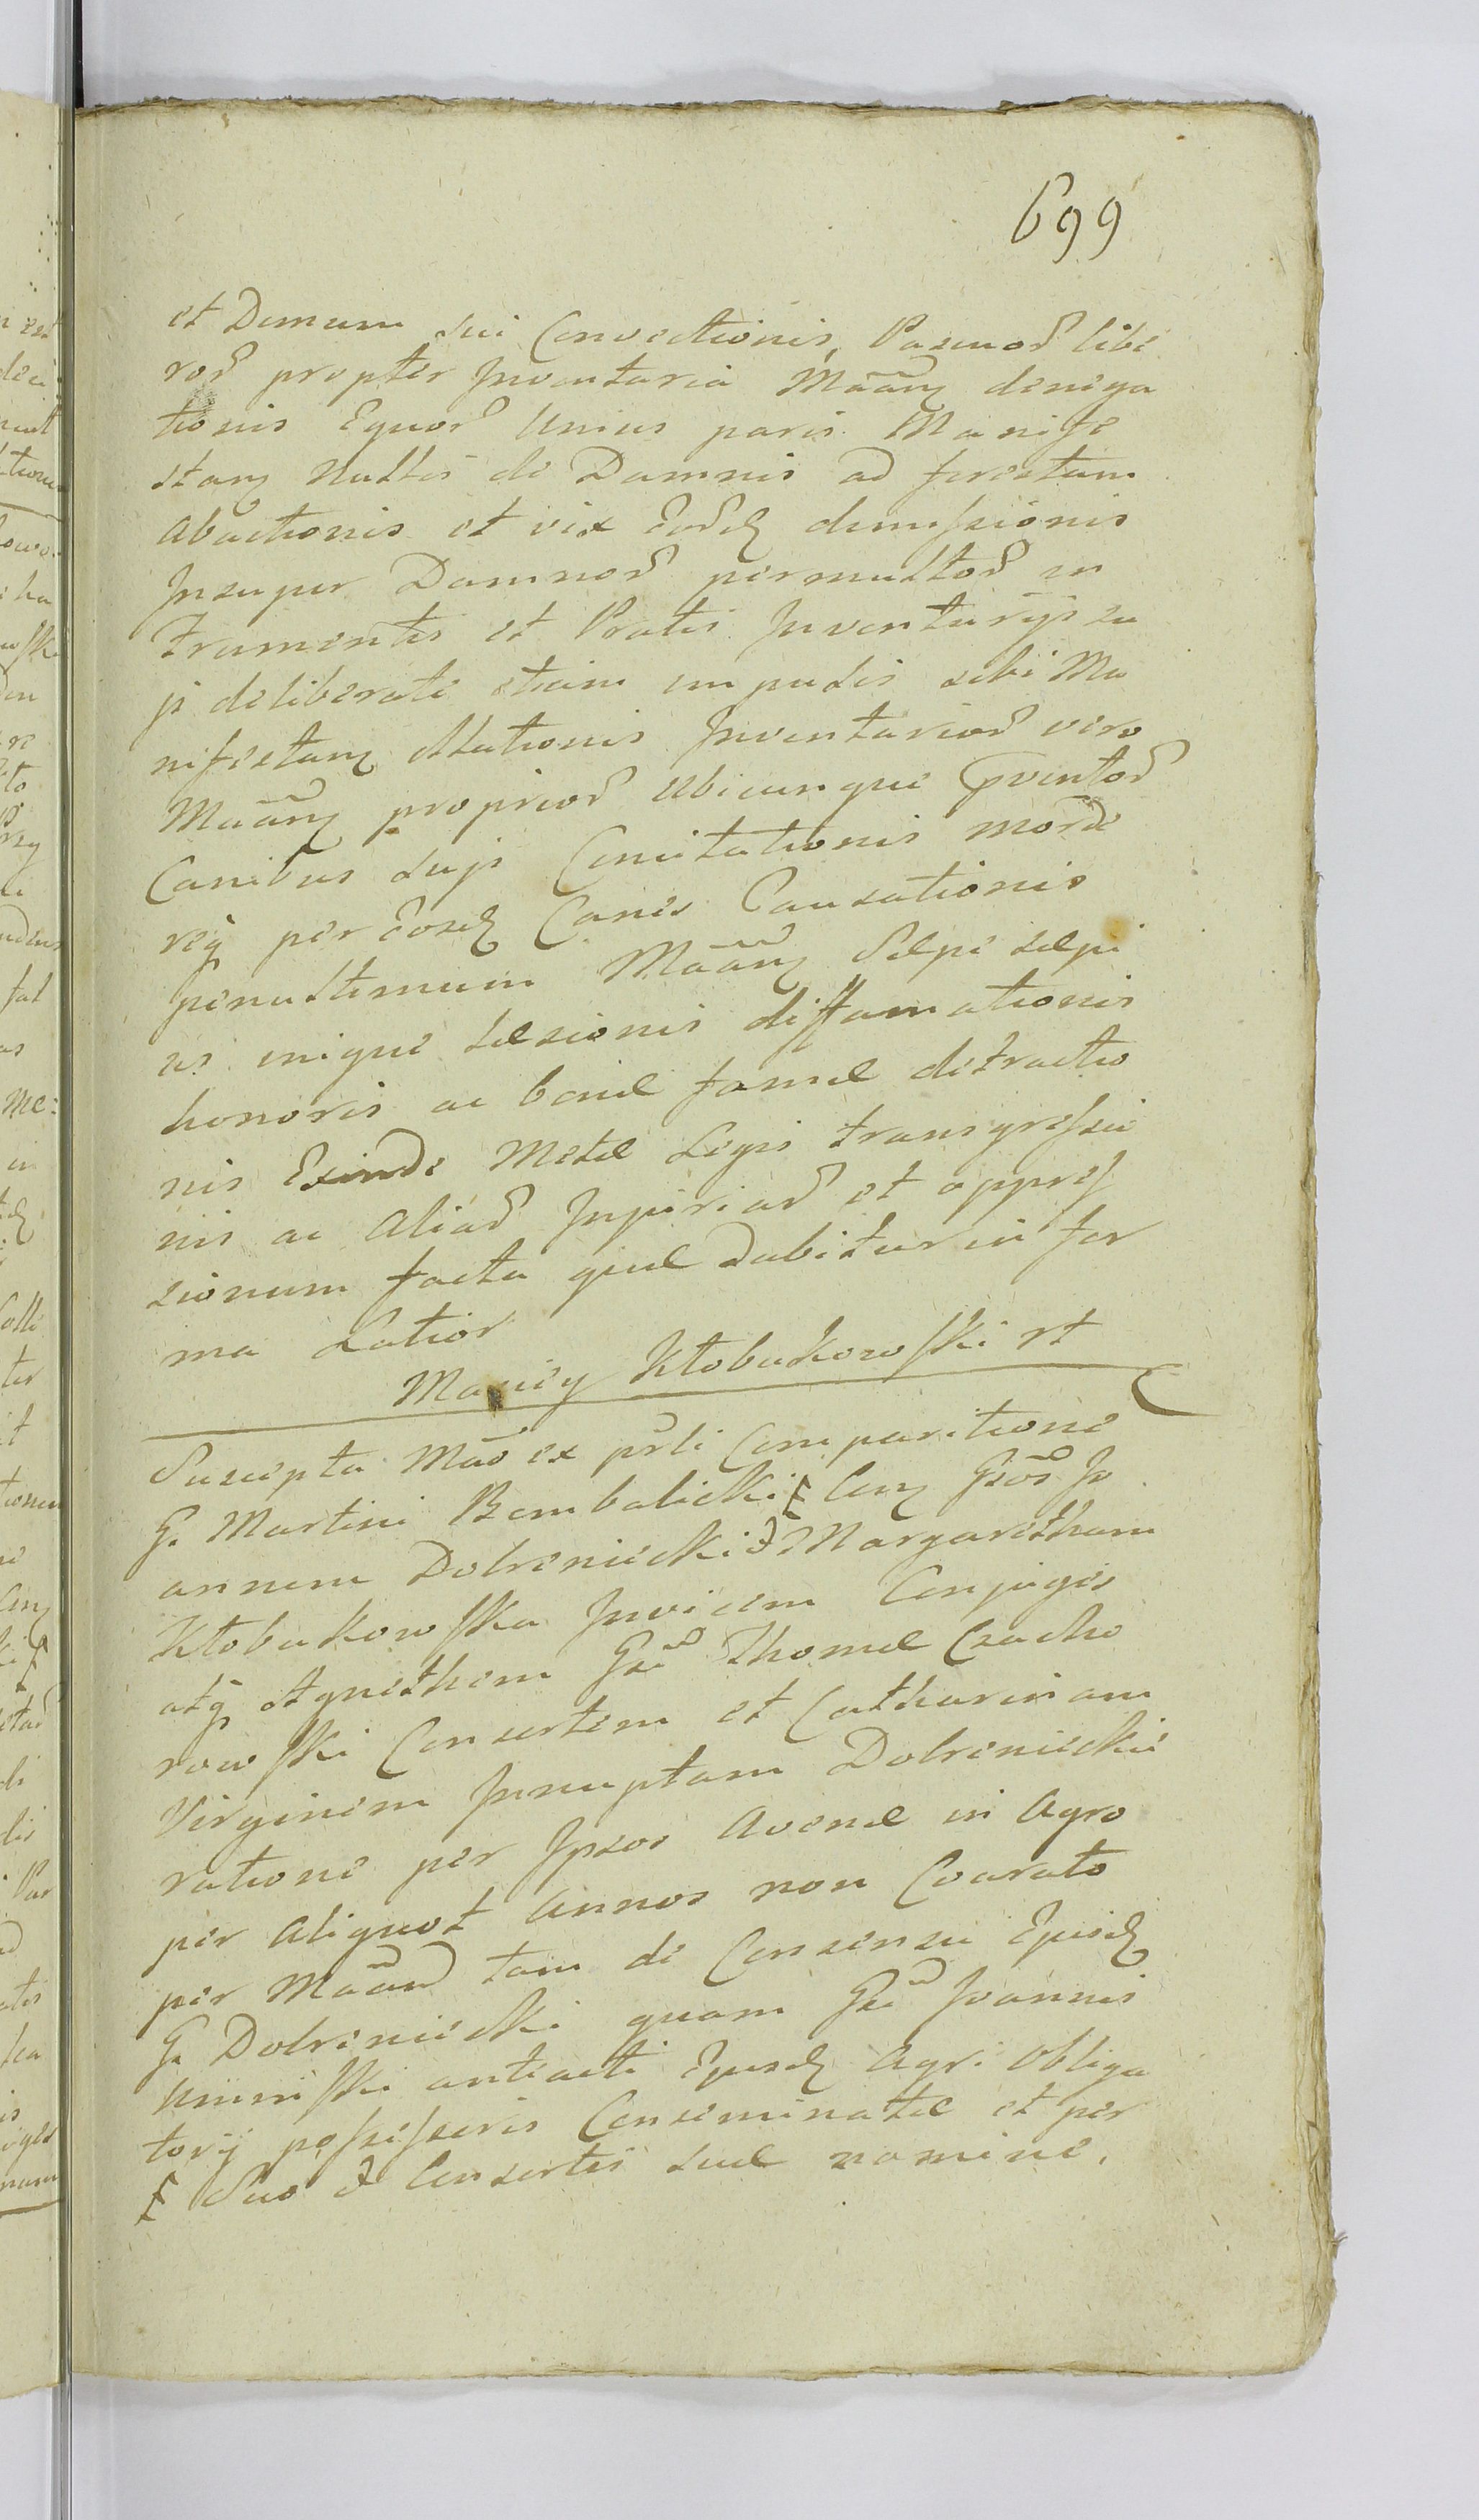 699
et Domum sui Convectionis, Pascuoȓ libe
roȓ propter Inventaria Mãnȝ denega
tionis Equoȓ Unius paris Manife
stanȝ Nullis de Damnis ad forestam
abactionis et vix eoȓdȝ dimissionis
Insuper Damnoȓ permultoȓ in
frumentis et Pratis Inventarijs su
js deliberate etiam impulsis sibi Ma
nifestanȝ Illationis Inventarioȓ vero
Mãnȝ proprioȓ ubicunque Inventoȓ
Canibus sujs Concitationis morde
reqȝ per eosdȝ Canes Causationis
penultimum Mãnȝ Sæpe sæpi
us inique Læsionis diffamationis
honoris ac bonæ famæ detractio
nis Exinde Metæ Legis transgressio
nis ac Aliaȓ Injuriaȓ et oppres
sionum facta quæ dabitur in for
ma Latior
Maciey Kłobukowski rt
Suscepta Mão ex pȓli Comparitione
G. Martini Bembalicki ꝉ Conȝ Gsõs Jo
annem Dobrzeniecki & Margaretham
Kłobukowska Invicem Conjuges
atqȝ Agnethem Gsi Thomæ Czacho
rowski Consortem et Catharinam
Virginem Innuptam Dobrzenieckie
ratione per Ipsos Avenæ in Agro
per aliquot Annos non Coarato
per Mãnȝ tam de Consensu Ejusdȝ
G. Dobrzeniecki quam Gsi Joannis
Uninski anteacti Ejusdȝ Agri obliga
torij possessoris Conseminatæ et per
ꝉ Suo & Consortis suæ nomine.